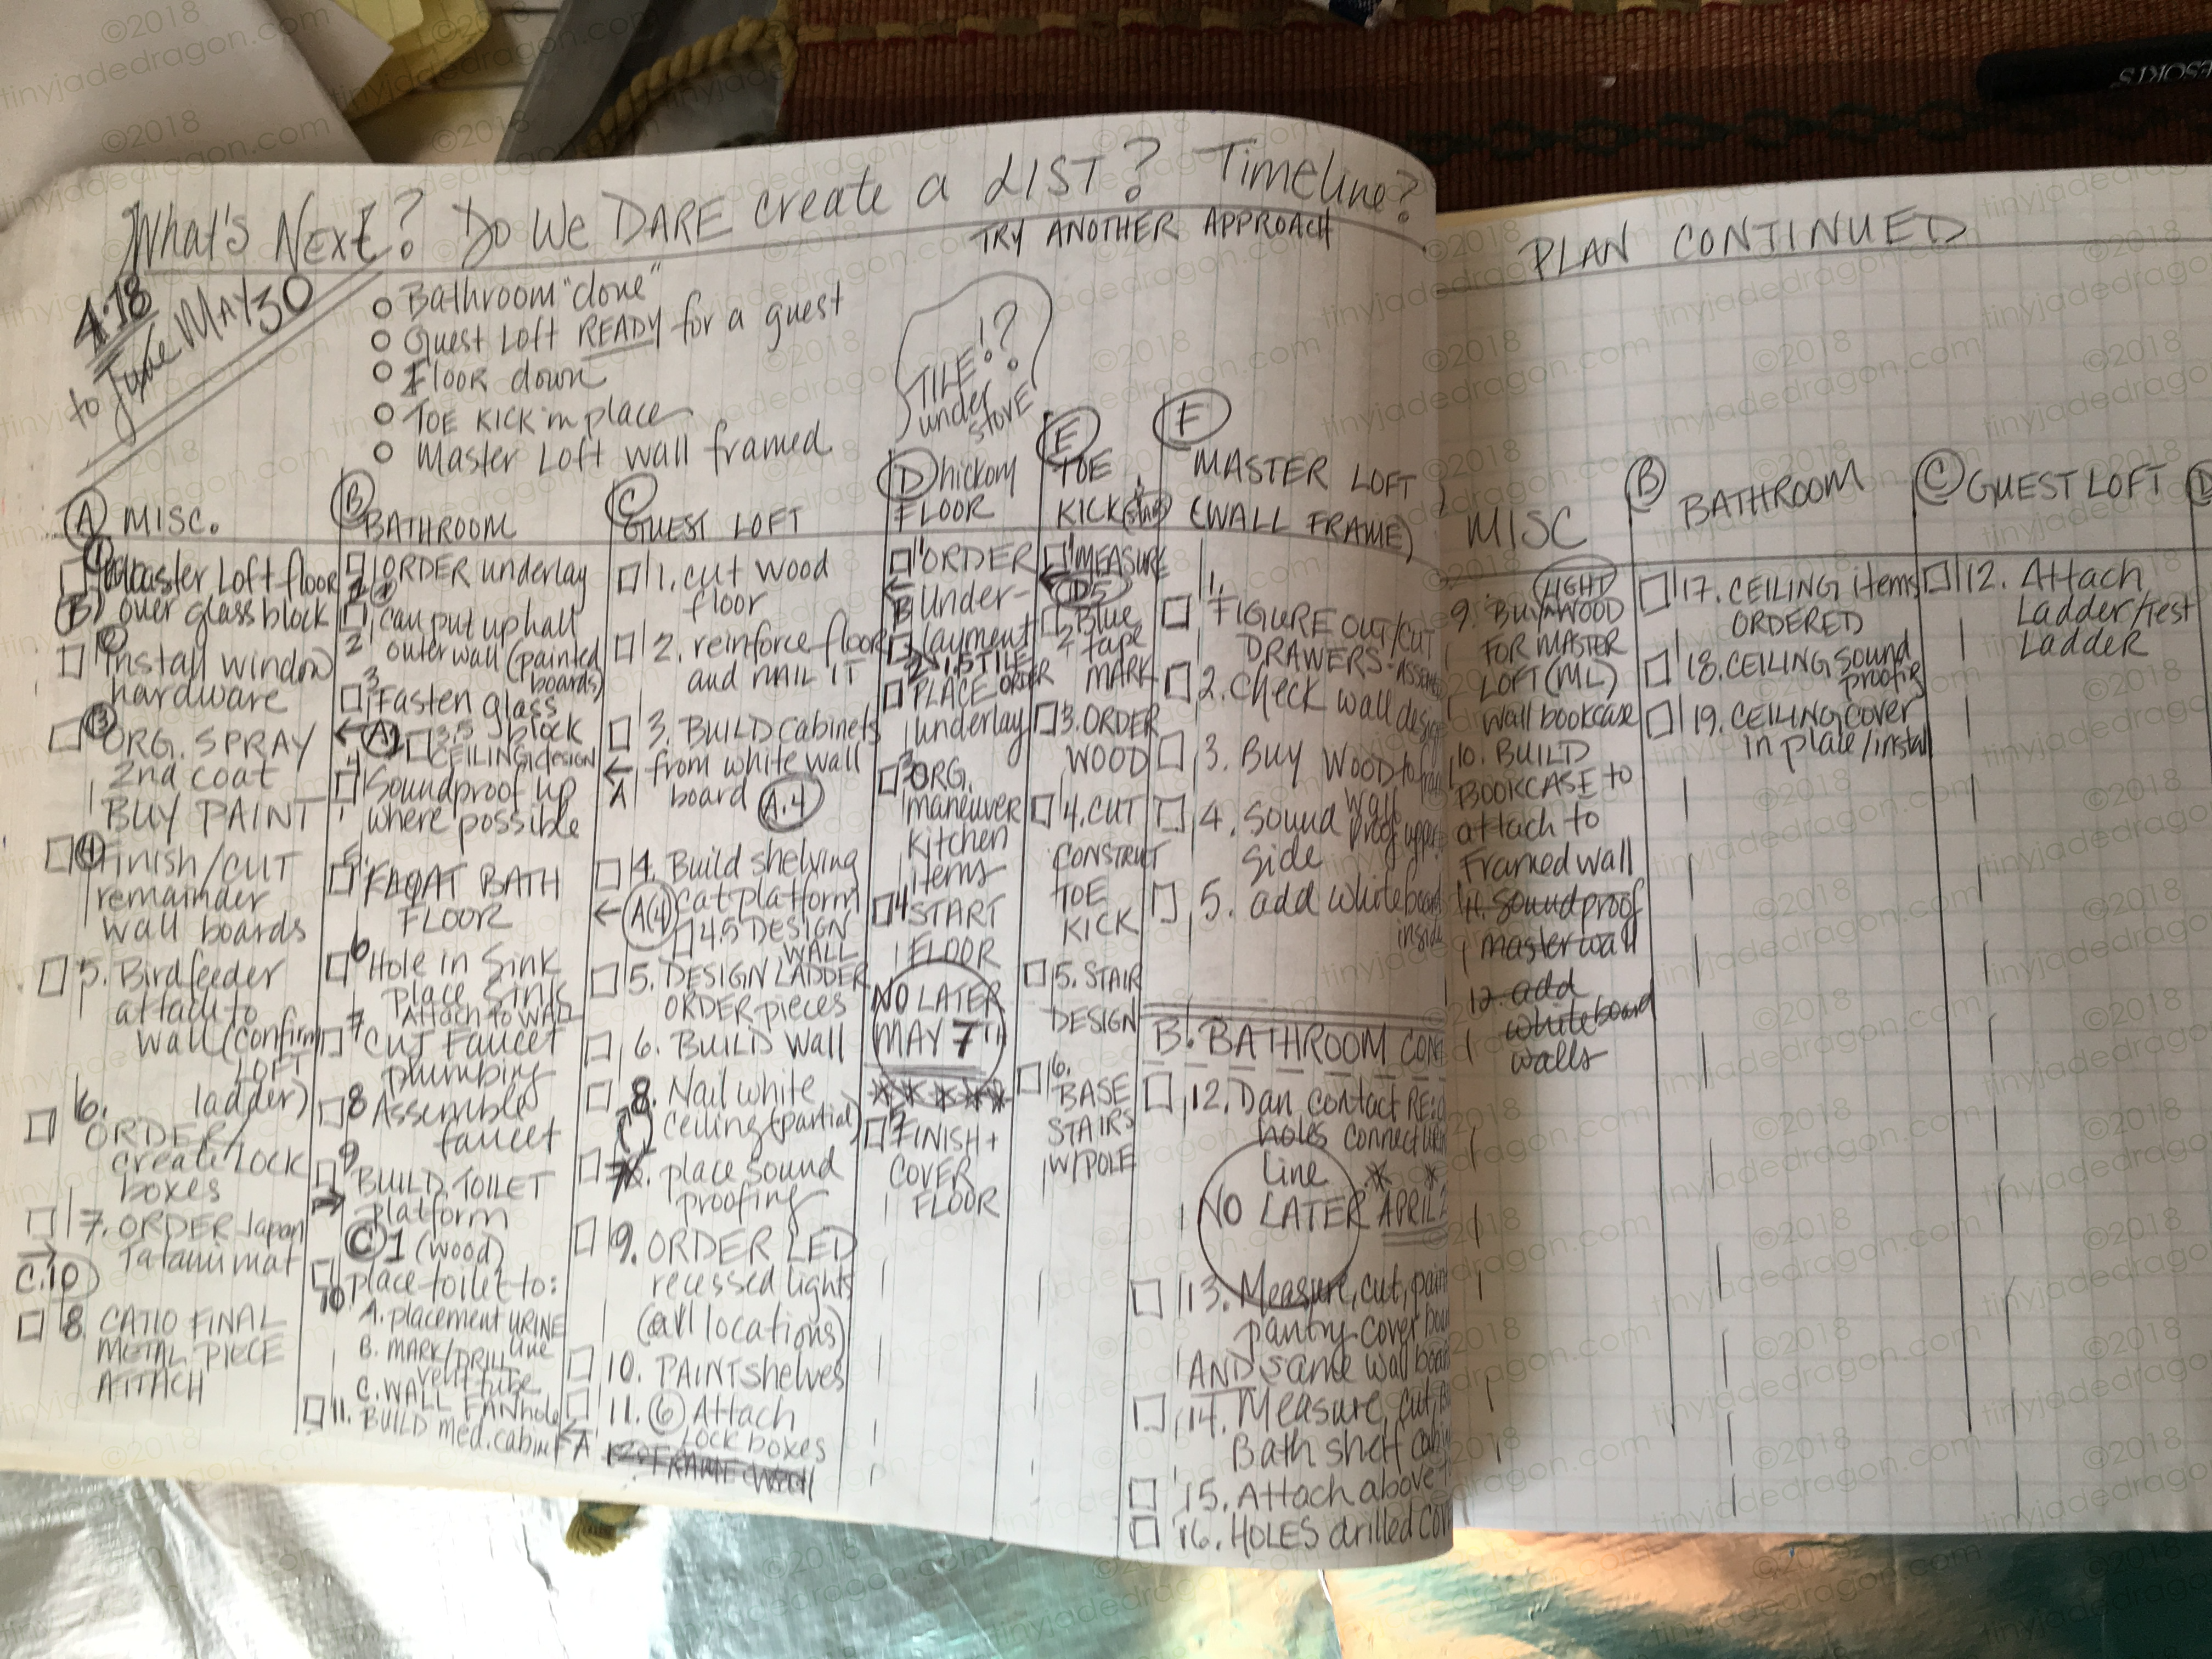 What's Next? Do We DARE create a LIST? Timeline?
TRY ANOTHER APPROACH
4.18
to June MAY 30
Bathroom "done"
Guest Loft READY for a guest
Floor down
TOE KICK in place
Master Loft wall framed
TILE!?
under
stove
A MISC.
1 Master Loft floor
(B) over glass block
2 install window
hardware
3 ORG. SPRAY
2nd coat
BUY PAINT
4 Finish/CUT
remainder
wall boards
5. Birdfeeder
attach to
wall (confirm
LOFT
ladder)
6. ORDER/
create LOCK
boxes
7. ORDER Japan
Tatami mat
C.10
8 CATIO FINAL
METAL PIECE
ATTACH
B BATHROOM
1 ORDER underlay
2 can put up hall
outer wall (painted
boards)
3 Fasten glass
block
A1 3.5
CEILING design
4 Soundproof up
where possible
5. FLOAT BATH
FLOOR
6 Hole in Sink
place sink
Attach to WALL
7 CUT Faucet
plumbing
8 Assemble
faucet
9 BUILD TOILET
platform
C1 (wood)
10 place toilet to:
A. placement URINE
line
B. MARK/DRILL
vent tube
C. WALL FAN hole
11. BUILD med. cabinet
C GUEST LOFT
1. cut wood
floor
2. reinforce floor
and NAIL IT
3. BUILD cabinets
from white wall
A board A.4
4. Build shelving
cat platform
A(4)
4.5 DESIGN
WALL
5. DESIGN LADDER
ORDER pieces
6. BUILD Wall
8. Nail white
ceiling (partial)
7. place sound
proofing
9. ORDER LED
recessed lights
(all locations)
10. PAINT shelves
11. 6 Attach
A Lock boxes
12. FRAME wall
D hickory
FLOOR
1 ORDER
B Under-
layment
1.5 TILE
2 PLACE ORDER
underlay
3 ORG.
maneuver
kitchen
items
4 START
FLOOR
NO LATER
MAY 7TH
FINISH +
COVER
FLOOR
E TOE
KICK (stairs)
1 MEASURE
D5
2 Blue
tape
MARK
3. ORDER
WOOD
4. CUT
CONSTRUCT
TOE
KICK
5. STAIR
DESIGN
6. BASE
STAIRS
W/POLE
F MASTER LOFT
(WALL FRAME)
1. FIGURE OUT/CUT
DRAWERS-
2. Check wall design
3. Buy WOOD to
wall
4. Sound proof upper
side
5. add whiteboard
inside
B. BATHROOM CON
12. Dan contact RE:
holes connect
Line
NO LATER APRIL
13. Measure, cut, paint
pantry cover
AND same wall
14. Measure, cut,
Bath shelf
15. Attach above
16. HOLES drilled
PLAN CONTINUED
MISC
9. BUY LIGHT WOOD
FOR MASTER
LOFT (ML)
wall bookcase
10. BUILD
BOOKCASE to
attach to
Framed wall
11. Soundproof
master wall
12. add
whiteboard
walls
B BATHROOM
17. CEILING items
ORDERED
18. CEILING sound
proofing
19. CEILING cover
in place/install
C GUEST LOFT
12. Attach
Ladder/test
Ladder
D
©2018
tinyjadedragon.com